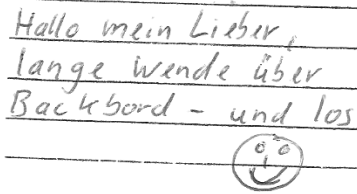 Hallo mein Lieber,
lange Wende über
Backbord - und los